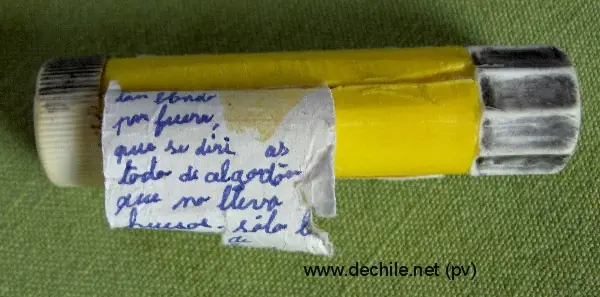 tan blando
por fuera,
que se diri as
todo de algodón
que no lleva
huesos. sólo l
de
www.dechile.net (pv)